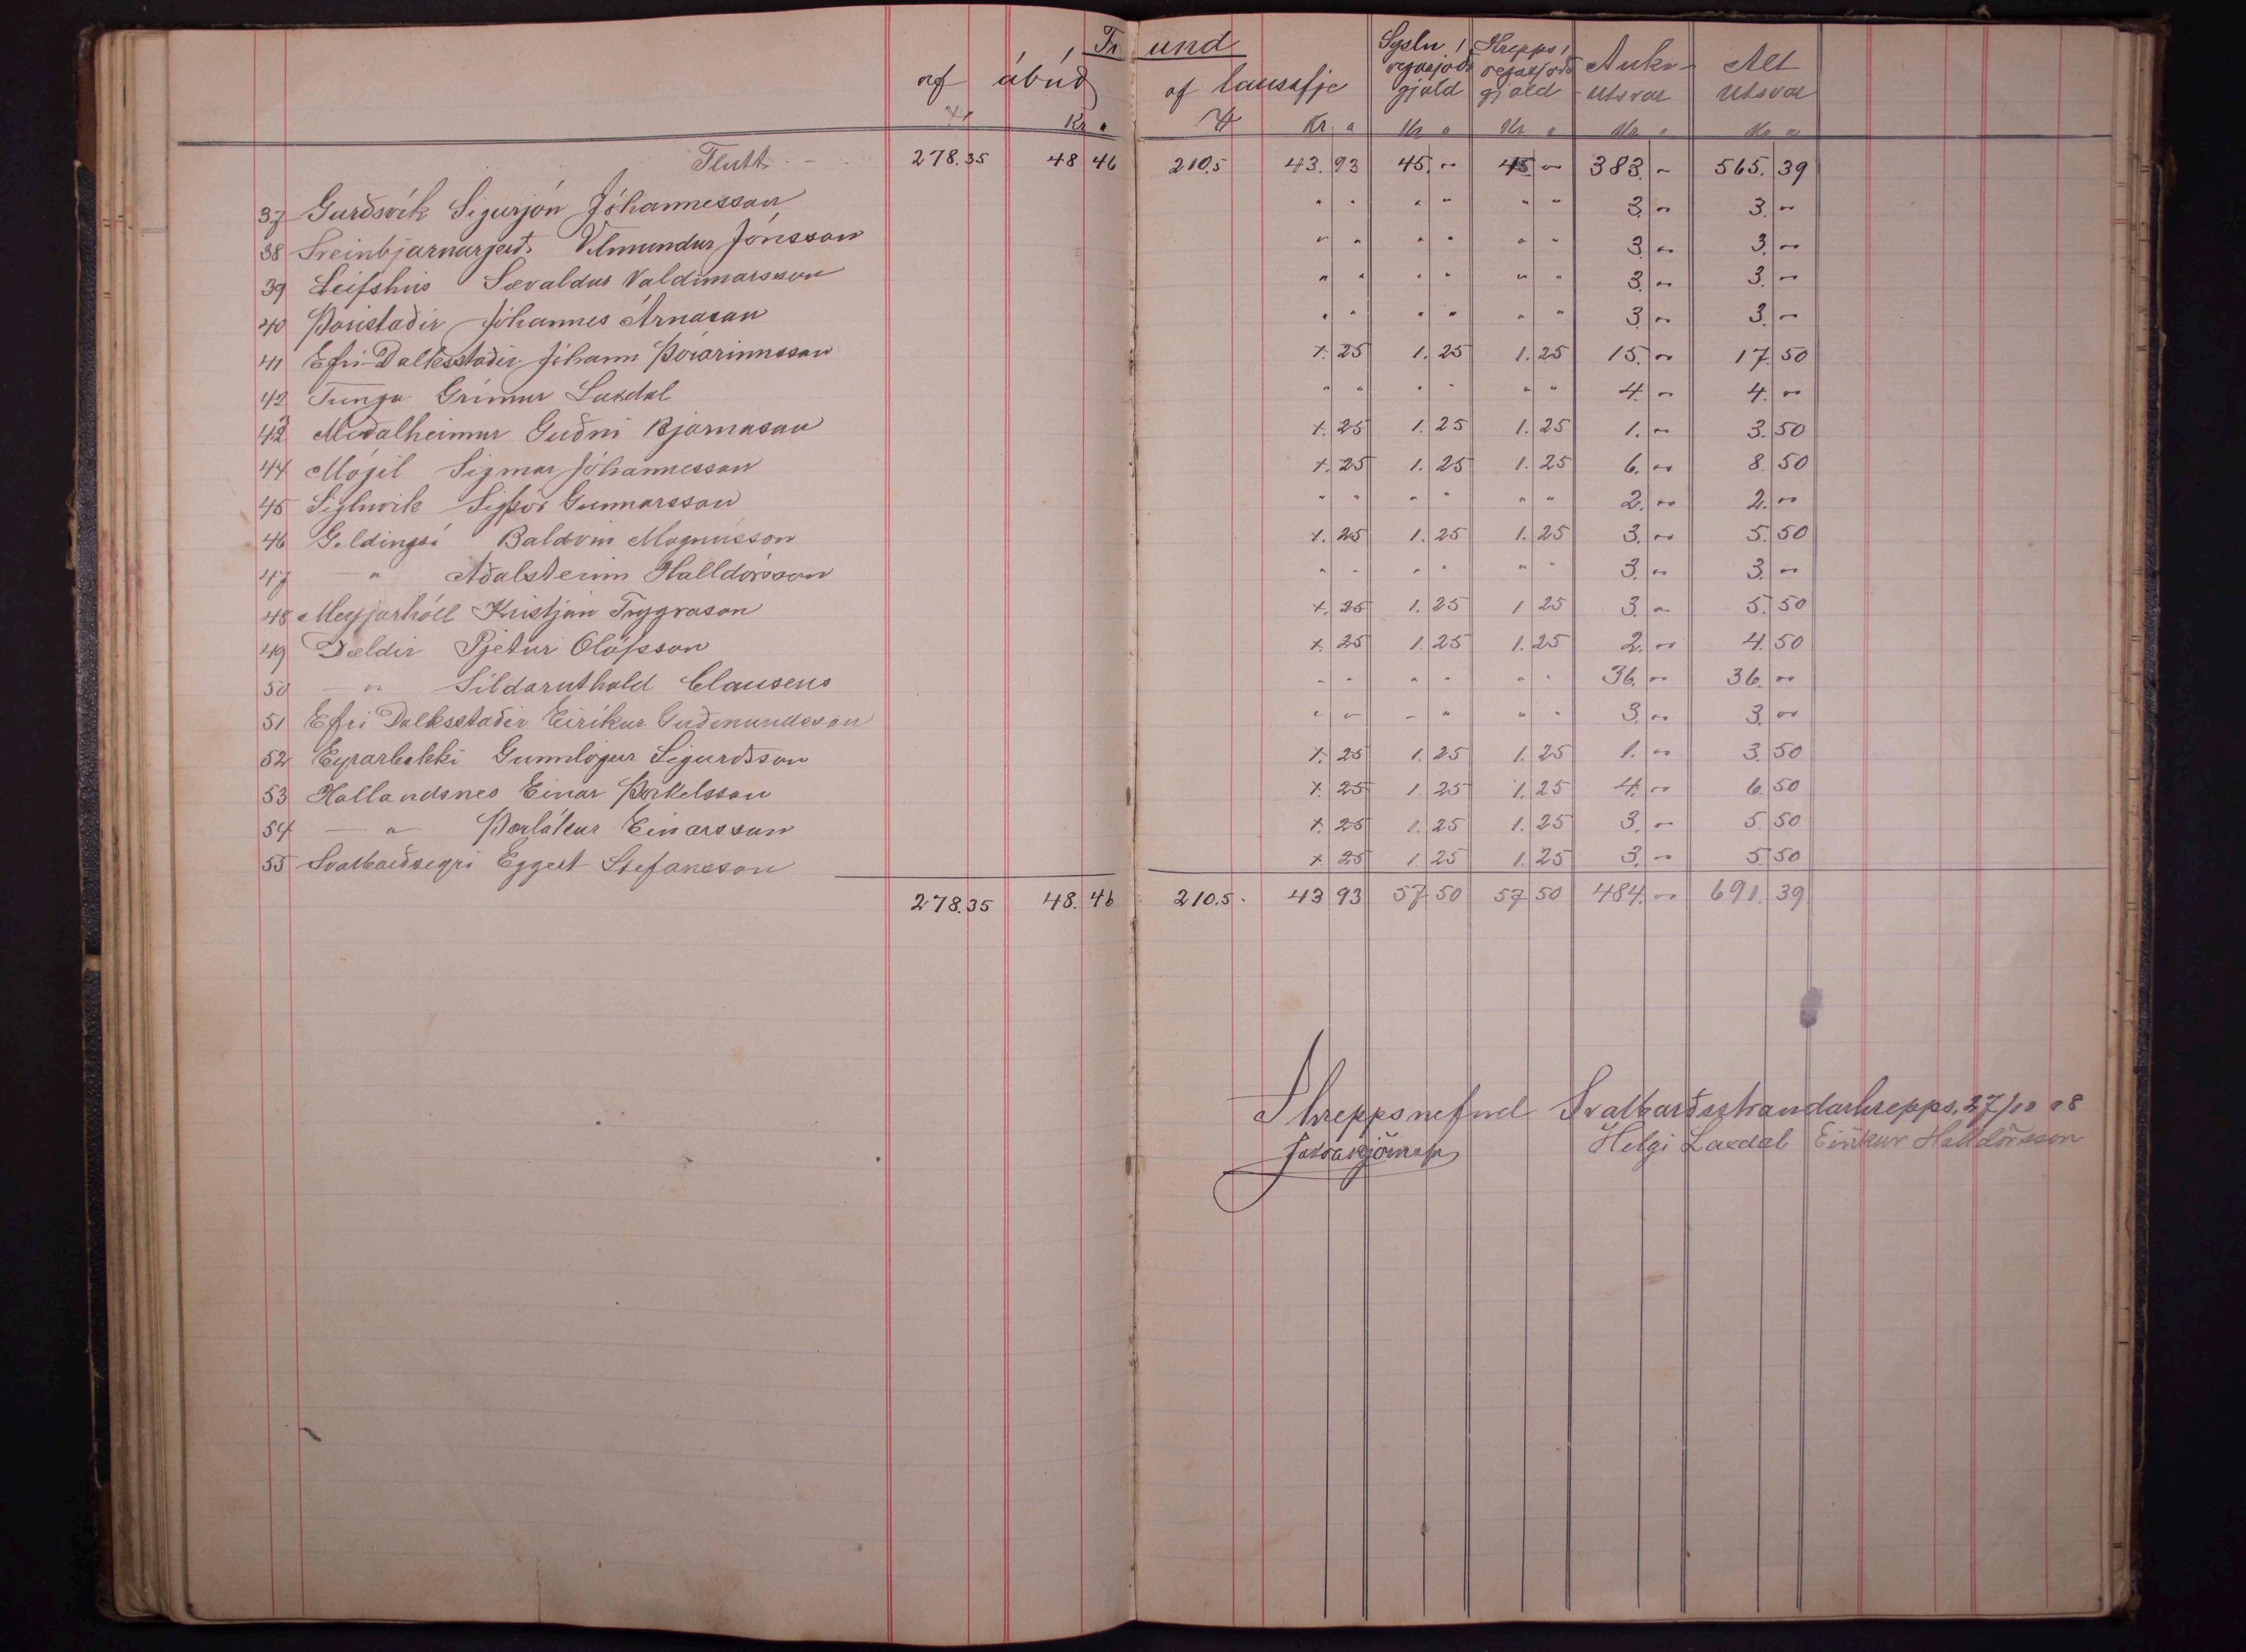 Tíund
af ábúð af lausafje Sýslu vegasjóðs gjald Hrepps vegasjóðs gjald Auka útsvar Alt útsvar
Kr a Kr. a Kr a Kr a Kr a Kr a
Flutt 278.35 48 46 210.5 43.93 45. " 45 " 383. " 565. 39
37 Garðsvík Sigurjón Jóhannesson " " " " " " 3. " 3. "
38 Sveinbjarnargerð. Vilmundur Jónsson " " " " " " 3. " 3. "
39 Leifshús Sævaldur Valdimarsson " " " " " " 3. " 3. "
40 Þórisstaðir Jóhannes Árnason " " " " " " 3. " 3. "
41 Efri-Dalksstaðir Jóhann Þórarinnsson 1. 25 1. 25 1. 25 15. " 17 50
42 Tunga Grímur Laxdal " " " " " " 4. " 4. "
43 Meðalheimur Guðni Bjarnason 1. 25 1. 25 1. 25 1. " 3. 50
44 Mógil Sigmar Jóhannesson 1. 25 1. 25 1. 25 6. " 8. 50
45 Sigluvík Sigþór Gunnarsson " " " " " " 2. " 2. "
46 Geldingsá Baldvin Magnússon 1. 25 1. 25 1. 25 3. " 5. 50
47 — " Aðalsteinn Halldórsson " " " " " " 3. " 3. "
48 Meyjarhóll Kristján Tryggvason 1. 25 1. 25 1 25 3. " 5. 50
49 Dældir Pjetur Ólafsson 1. 25 1. 25 1. 25 2. " 4. 50
50 — " Síldarúthald Clausens " " " " " " 36. " 36. "
51 Efri Dalksstaðir Eiríkur Guðmundsson " " " " " " 3. " 3. "
52 Eyrarbakki Gunnlögur Sigurðsson 1. 25 1. 25 1. 25 1. " 3. 50
53 Hallandsnes Einar Þorkelsson 1. 25 1 25 1. 25 4. " 6. 50
54 — " — Þorlákur Einarsson 1. 25 1. 25 1. 25 3. " 5. 50
55 Svalbarðseyri Eggert Stefánsson 1. 25 1. 25 1. 25 3. " 5. 50
278.35 48. 46 210.5. 43 93 57 50 57 50 484. " 691. 39
Í hreppsnefnd Svalbarðsstrandarhrepps, 27/10 08
Helgi Laxdal Eiríkur Halldórsson